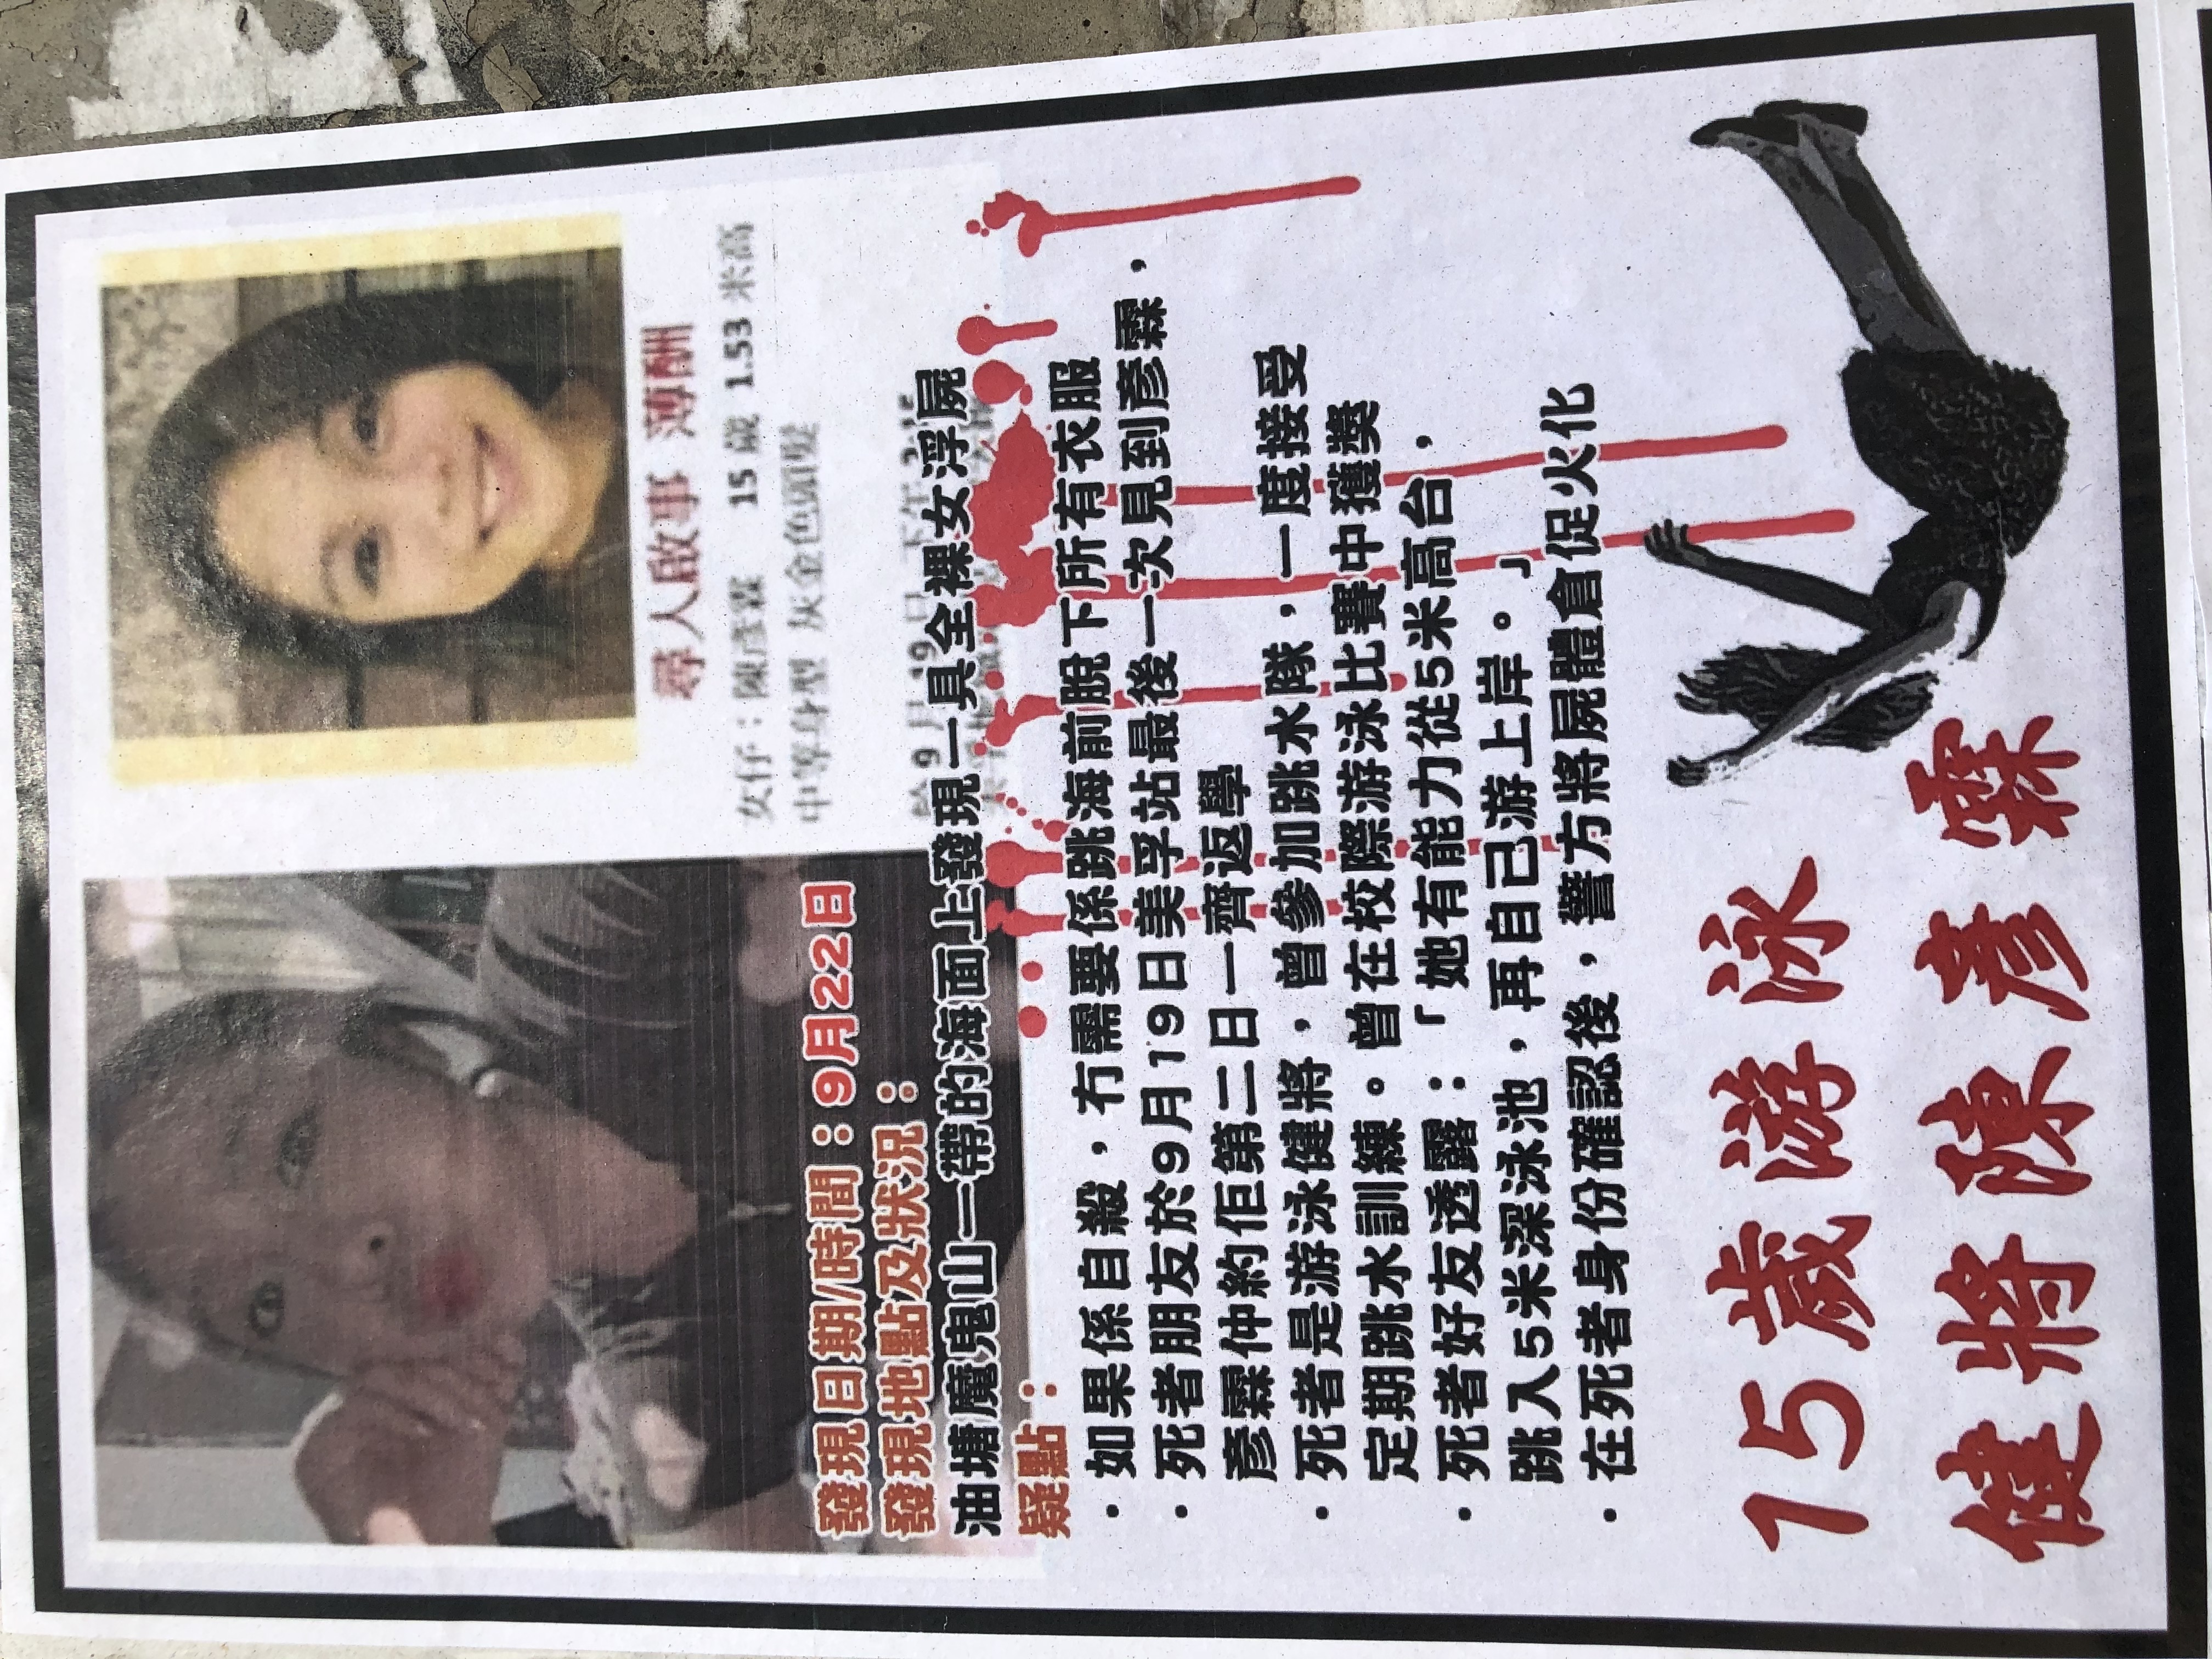 尋人啟事 薄酬
女仔：陳彥霖 15 歲 1.53 米高
中等身型 灰金色頭髮
於 9 月 19 日 下午 2:15
發現日期/時間：9月22日
發現地點及狀況：
油塘魔鬼山一帶的海面上發現一具全裸女浮屍
疑點：
· 如果係自殺，冇需要係跳海前脫下所有衣服
· 死者朋友於9月19日美孚站最後一次見到彥霖，
彥霖仲約佢第二日一齊返學
· 死者是游泳健將，曾參加跳水隊，一度接受
定期跳水訓練。曾在校際游泳比賽中獲獎
· 死者好友透露：「她有能力從5米高台，
跳入5米深泳池，再自己游上岸。」
· 在死者身份確認後，警方將屍體倉促火化
15歲游泳
健將陳彥霖